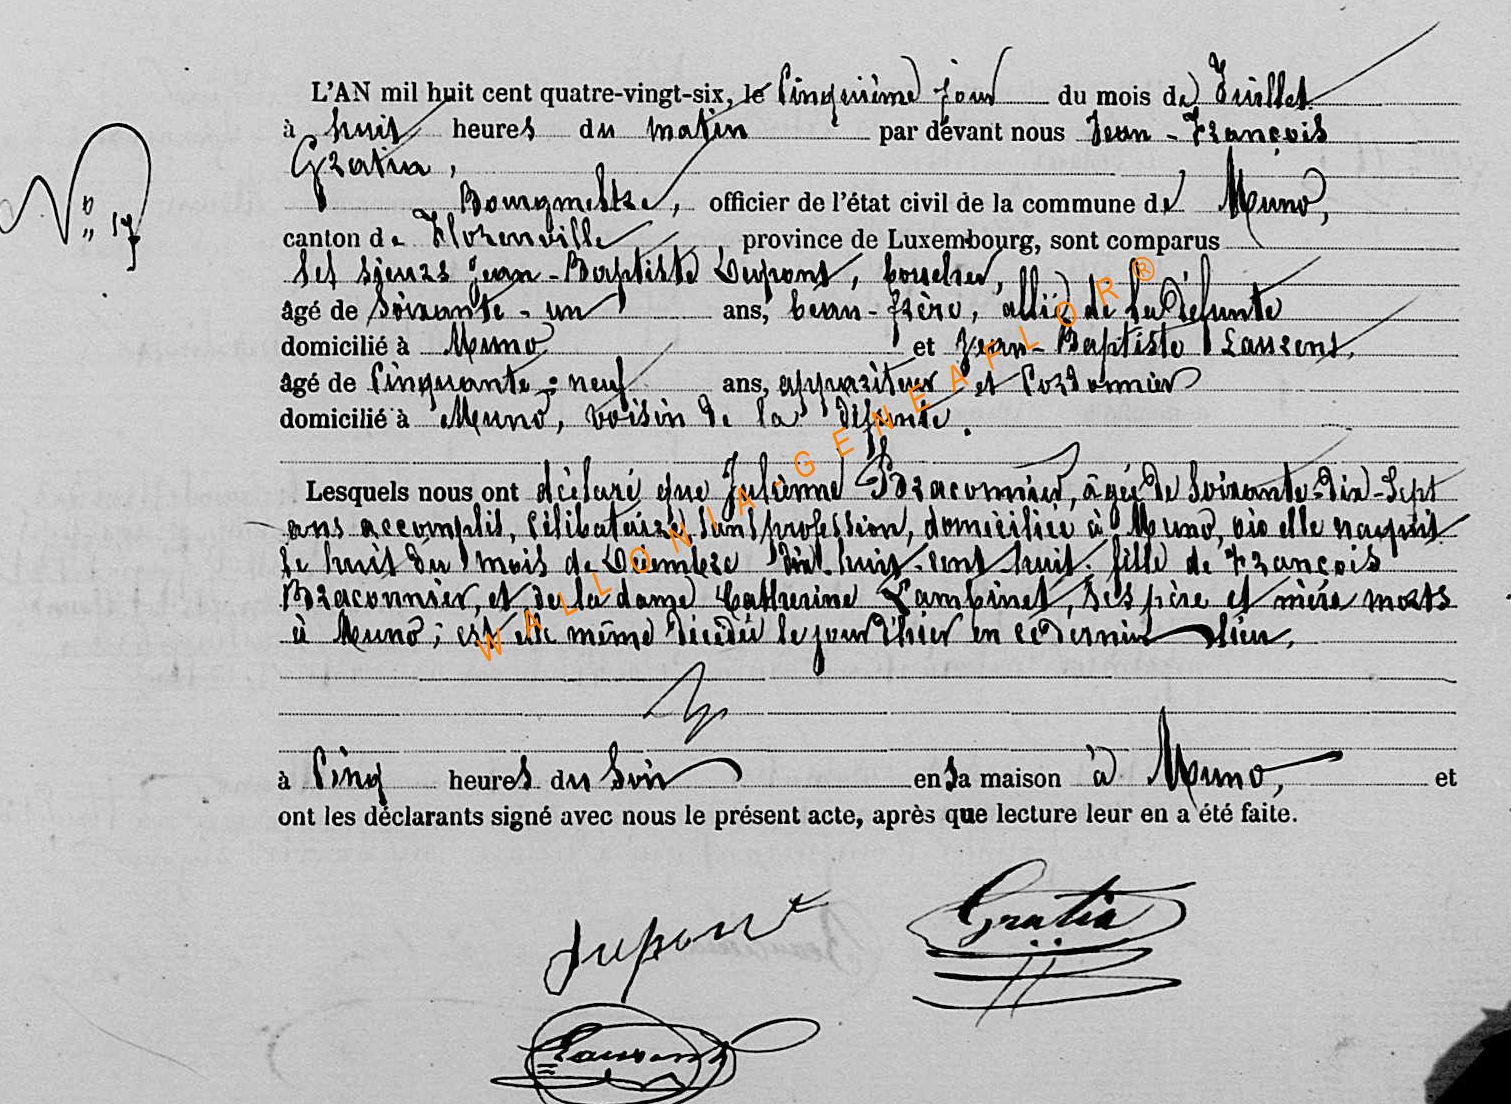 L'AN mil huit cent quatre-vingt-six, le Cinquième jour du mois de Juillet
à huit heures du matin par devant nous Jean-François
Gratia,
N° 17
Bourgmestre, officier de l'état civil de la commune de Muno,
canton de Florenville province de Luxembourg, sont comparus
les sieurs Jean-Baptiste Dupont, boucher,
âgé de Soixante-un ans, beau-frère, allié de la Défunte
domicilié à Muno et Jean-Baptiste Laurent,
âgé de Cinquante-neuf ans, appariteur et Cordonnier
domicilié à Muno, voisin de la défunte.
Lesquels nous ont déclaré que Julienne Braconnier, âgée de Soixante-Dix-Sept
ans accomplis, Célibataire, sans profession, domiciliée à Muno, où elle naquit
le huit du mois de Décembre Dix-huit-cent-huit, fille de François
Braconnier, et de la dame Catherine Lambinet, ses père et mère morts
à Muno; est elle même décédée le jour d'hier en ce dernier lieu,
à Cinq heures du Soir en sa maison à Muno, et
ont les déclarants signé avec nous le présent acte, après que lecture leur en a été faite.
Dupont
Gratia
Laurent
WALLONIA-GENEAFLOR®